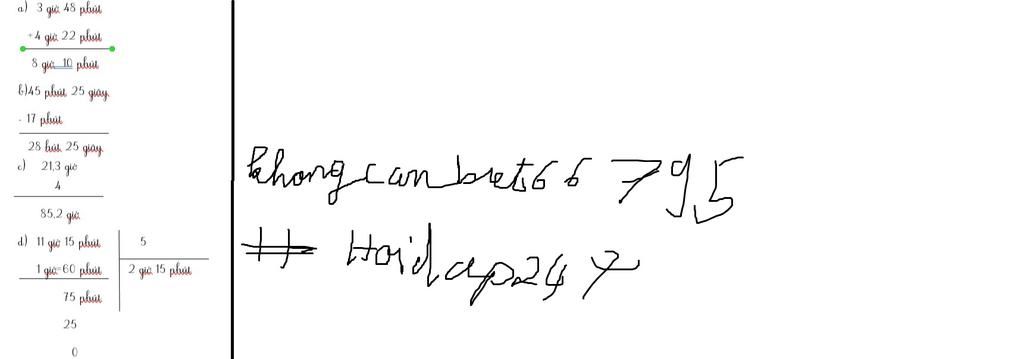 a) 3 giờ 48 phút
+4 giờ 22 phút
8 giờ 10 phút
b)45 phút 25 giây
- 17 phút
28 phút 25 giây
c) 21,3 giờ
4
85,2 giờ
d) 11 giờ 15 phút 5
1 giờ=60 phút 2 giờ 15 phút
75 phút
25
0
khongcanbiet66 795
# Hoidap247